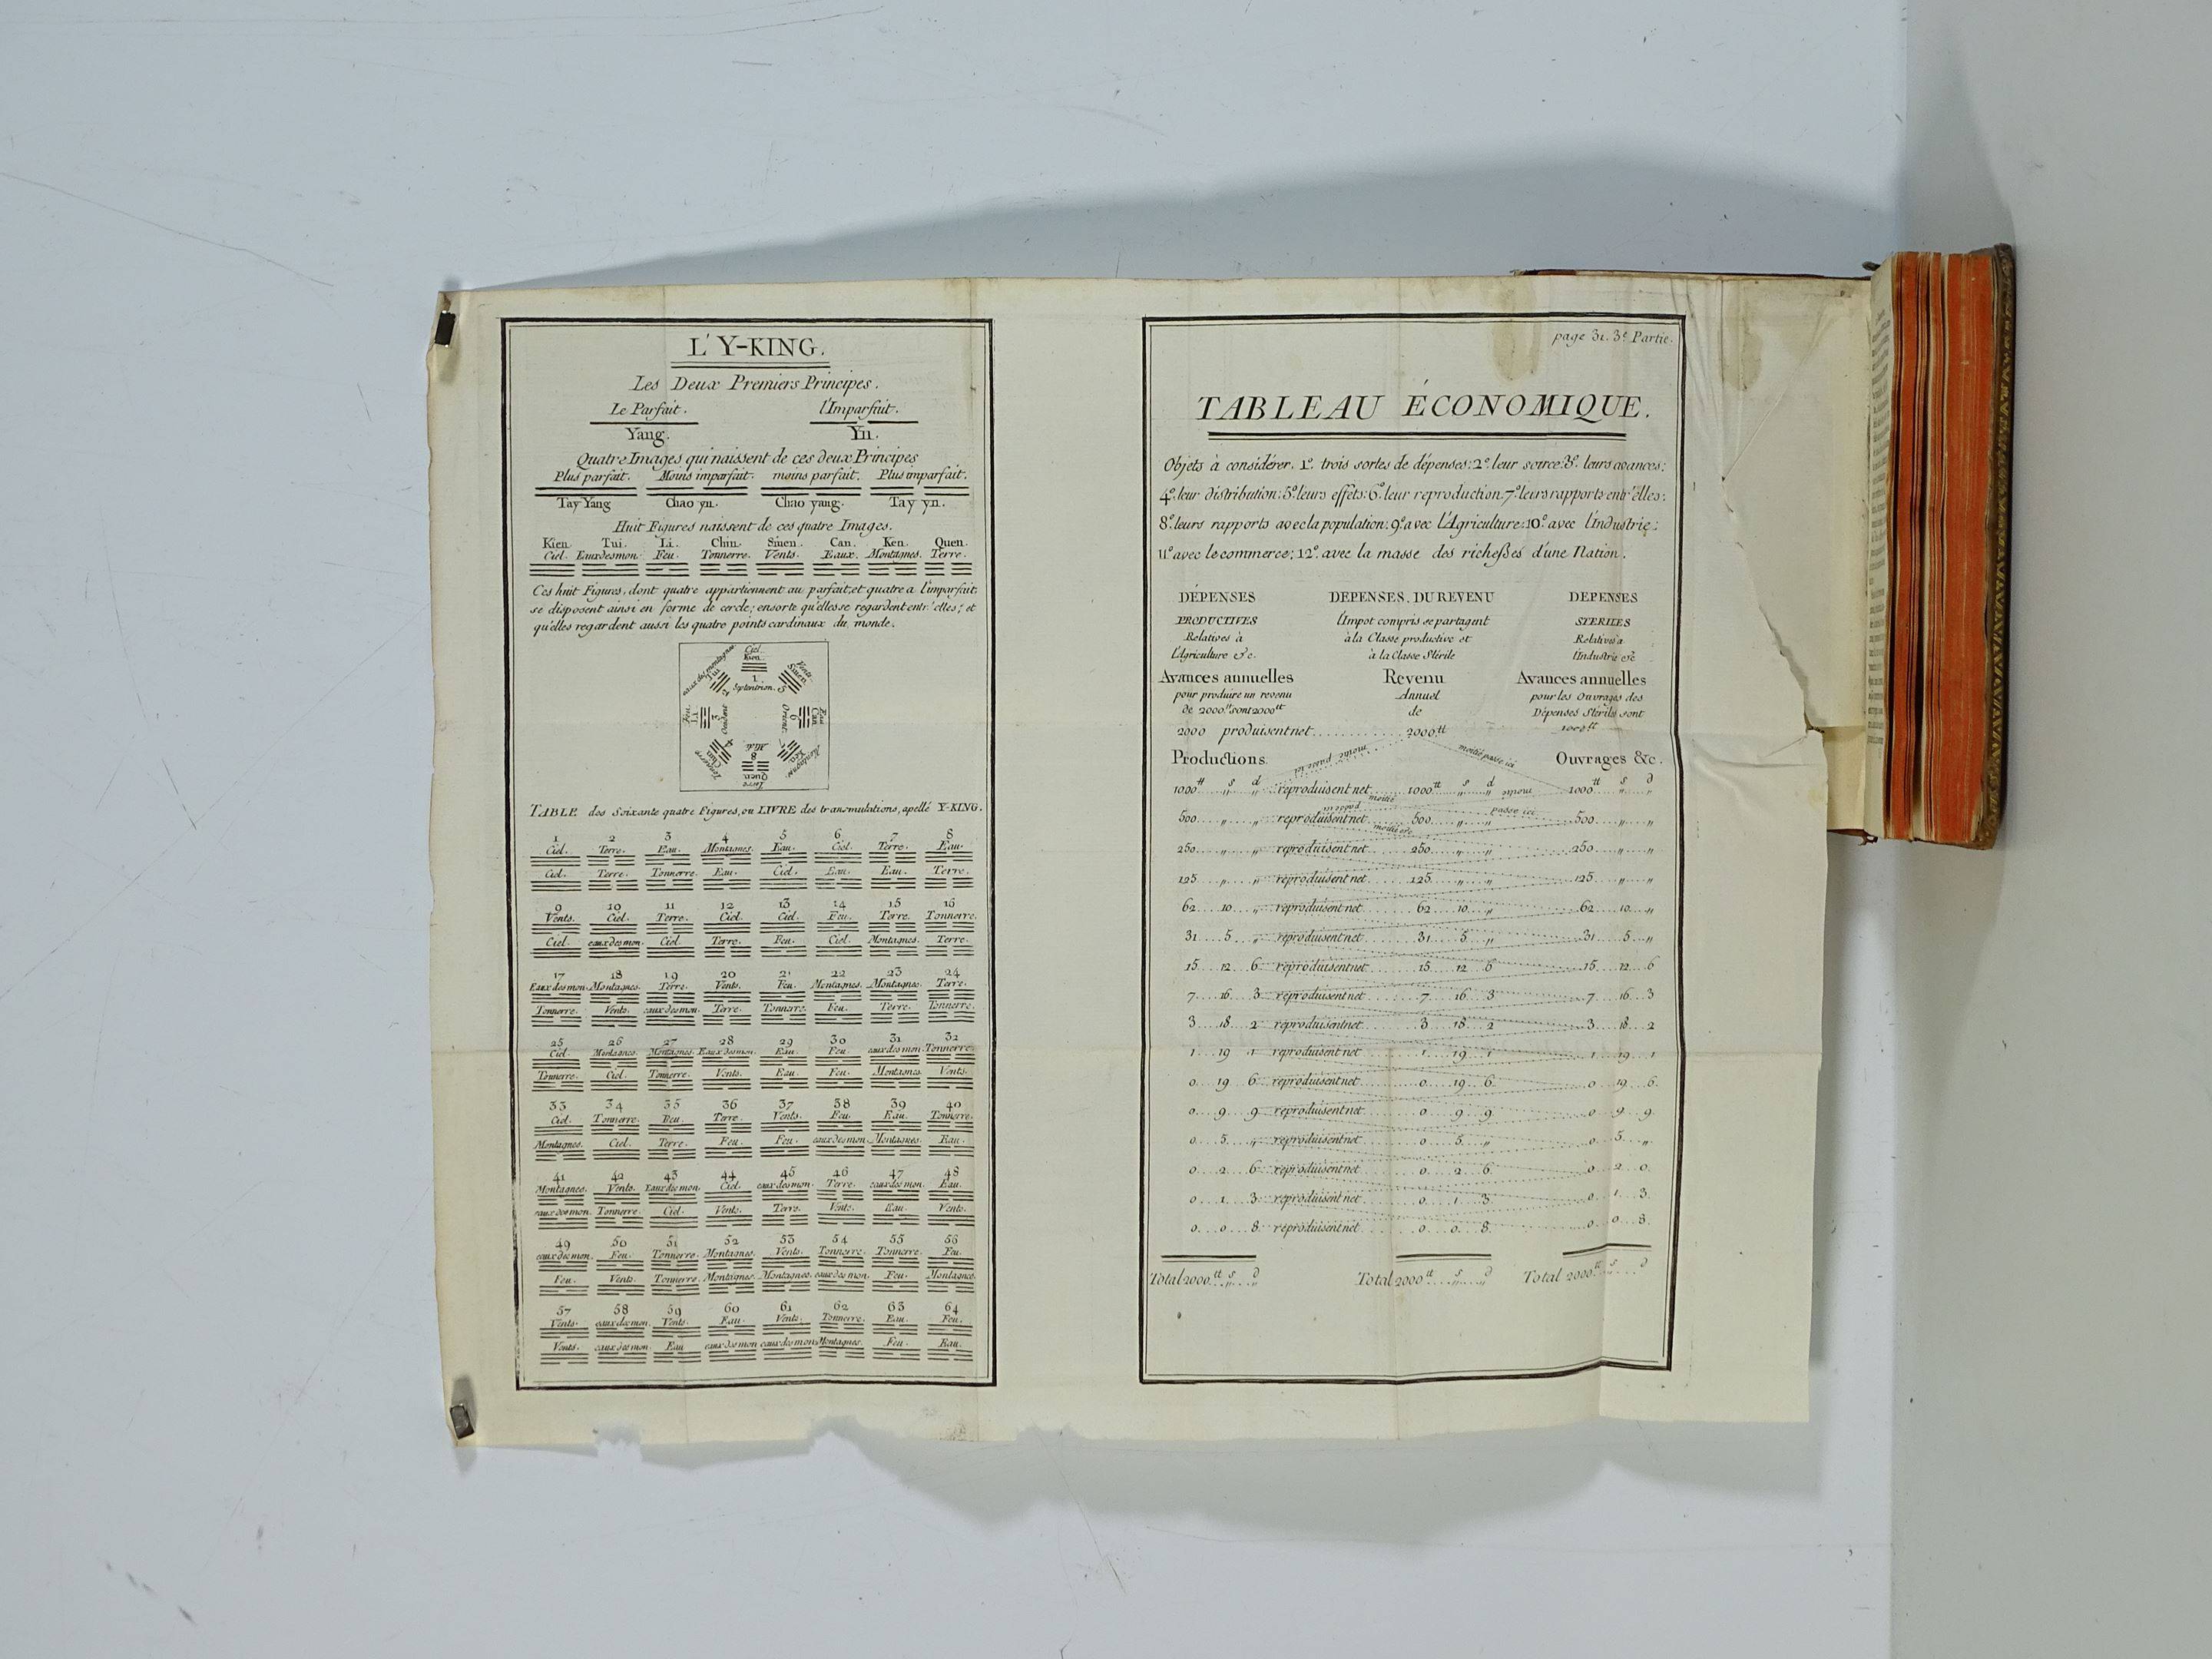 L'Y-KING.
Les Deux Premiers Principes.
Le Parfait. l'Imparfait.
Yang. Yn.
Quatre Images qui naissent de ces deux Principes
Plus parfait. Moins imparfait. moins parfait. Plus imparfait.
Tay Yang Chao yn. Chao yang. Tay yn.
Huit Figures naissent de ces quatre Images.
Kien. Tui. Li. Chin. Suen. Can. Ken. Quen.
Ciel. Eaux des mon. Feu. Tonnerre. Vents. Eaux. Montagnes. Terre.
Ces huit Figures, dont quatre appartiennent au parfait, et quatre a l'imparfait,
se disposent ainsi en forme de cercle; ensorte qu'elles se regardent entr'elles; et
qu'elles regardent aussi les quatre points cardinaux du monde.
Ciel.
Kien.
1.
Septentrion.
Vents.
Suen.
5
Eau
Can
6
Orient.
Montagnes
Ken.
7
Midi.
8
Quen.
Terre
Tonnerre
Chin
4
Feu.
Li
3
Occident
eaux des montagnes
Tui
2
TABLE des Soixante quatre Figures, ou LIVRE des transmutations, apellé Y-KING.
1 2 3 4 5 6 7 8
Ciel. Terre. Eau. Montagnes. Eau. Ciel. Terre. Eau.
Ciel. Terre. Tonnerre. Eau. Ciel. Eau. Eau. Terre.
9 10 11 12 13 14 15 16
Vents. Ciel. Terre. Ciel. Ciel. Feu. Terre. Tonnerre.
Ciel. eaux des mon. Ciel. Terre. Feu. Ciel. Montagnes. Terre.
17 18 19 20 21 22 23 24
Eaux des mon. Montagnes. Terre. Vents. Feu. Montagnes. Montagnes. Terre.
Tonnerre. Vents. eaux des mon. Terre. Tonnerre. Feu. Terre. Tonnerre.
25 26 27 28 29 30 31 32
Ciel. Montagnes. Montagnes. Eaux des mon. Eau. Feu. eaux des mon. Tonnerre.
Tonnerre. Ciel. Tonnerre. Vents. Eau. Feu. Montagnes. Vents.
33 34 35 36 37 38 39 40
Ciel. Tonnerre. Feu. Terre. Vents. Feu. Eau. Tonnerre.
Montagnes. Ciel. Terre. Feu. Feu. eaux des mon. Montagnes. Eau.
41 42 43 44 45 46 47 48
Montagnes. Vents. Eaux des mon. Ciel. eaux des mon. Terre. eaux des mon. Eau.
eaux des mon. Tonnerre. Ciel. Vents. Terre. Vents. Eau. Vents.
49 50 51 52 53 54 55 56
eaux des mon. Feu. Tonnerre. Montagnes. Vents. Tonnerre. Tonnerre. Feu.
Feu. Vents. Tonnerre. Montagnes. Montagnes. eaux des mon. Feu. Montagnes.
57 58 59 60 61 62 63 64
Vents. eaux des mon. Vents. Eau. Vents. Tonnerre. Eau. Feu.
Vents. eaux des mon. Eau eaux des mon eaux des mon. Montagnes. Feu. Eau.
page 31. 3e Partie.
TABLEAU ÉCONOMIQUE.
Objets à considérer. 1° trois sortes de dépenses: 2° leur source: 3° leurs avances:
4° leur distribution: 5° leurs effets: 6° leur reproduction 7° leurs rapports entr'elles:
8° leurs rapports avec la population: 9° avec l'Agriculture: 10° avec l'industrie:
11° avec le commerce; 12° avec la masse des richesses d'une Nation.
DÉPENSES DEPENSES. DU REVENU DEPENSES
PRODUCTIVES l'Impot compris se partagent STERILES
Relatives à à la Classe productive et Relatives a
l'Agriculture &c. à la Classe Stérile l'Industrie &c
Avances annuelles Revenu Avances annuelles
pour produire un revenu Annuel pour les Ouvrages des
de 2000.tt sont 2000tt de Dépenses Stériles sont
2000 produisent net............ 2000tt 1000tt
moitié passe ici moitié passe ici
Productions. Ouvrages &c.
1000tt s d reproduisent net 1000tt s d 1000tt s d
moitié
moitié passe ici
500...„....„ reproduisent net 500...„....„ 500...„....„
moitié &c.
250...„....„ reproduisent net 250...„....„ 250...„....„
125...„....„ reproduisent net 125...„....„ 125...„....„
62...10...„ reproduisent net 62...10...„ 62...10...„
31...5...„ reproduisent net 31...5...„ 31...5...„
15...12...6 reproduisent net 15...12...6 15...12...6
7...16...3 reproduisent net 7...16...3 7...16...3
3...18...2 reproduisent net 3...18...2 3...18...2
1...19...1 reproduisent net 1...19...1 1...19...1
0...19...6 reproduisent net 0...19...6 0...19...6
0...9...9 reproduisent net 0...9...9 0...9...9
0...5...„ reproduisent net 0...5...„ 0...5...„
0...2...6 reproduisent net 0...2...6 0...2...0
0...1...3 reproduisent net 0...1...3 0...1...3
0...0...8 reproduisent net 0...0...8 0...0...8
Total 2000tt s d Total 2000tt s d Total 2000tt s d